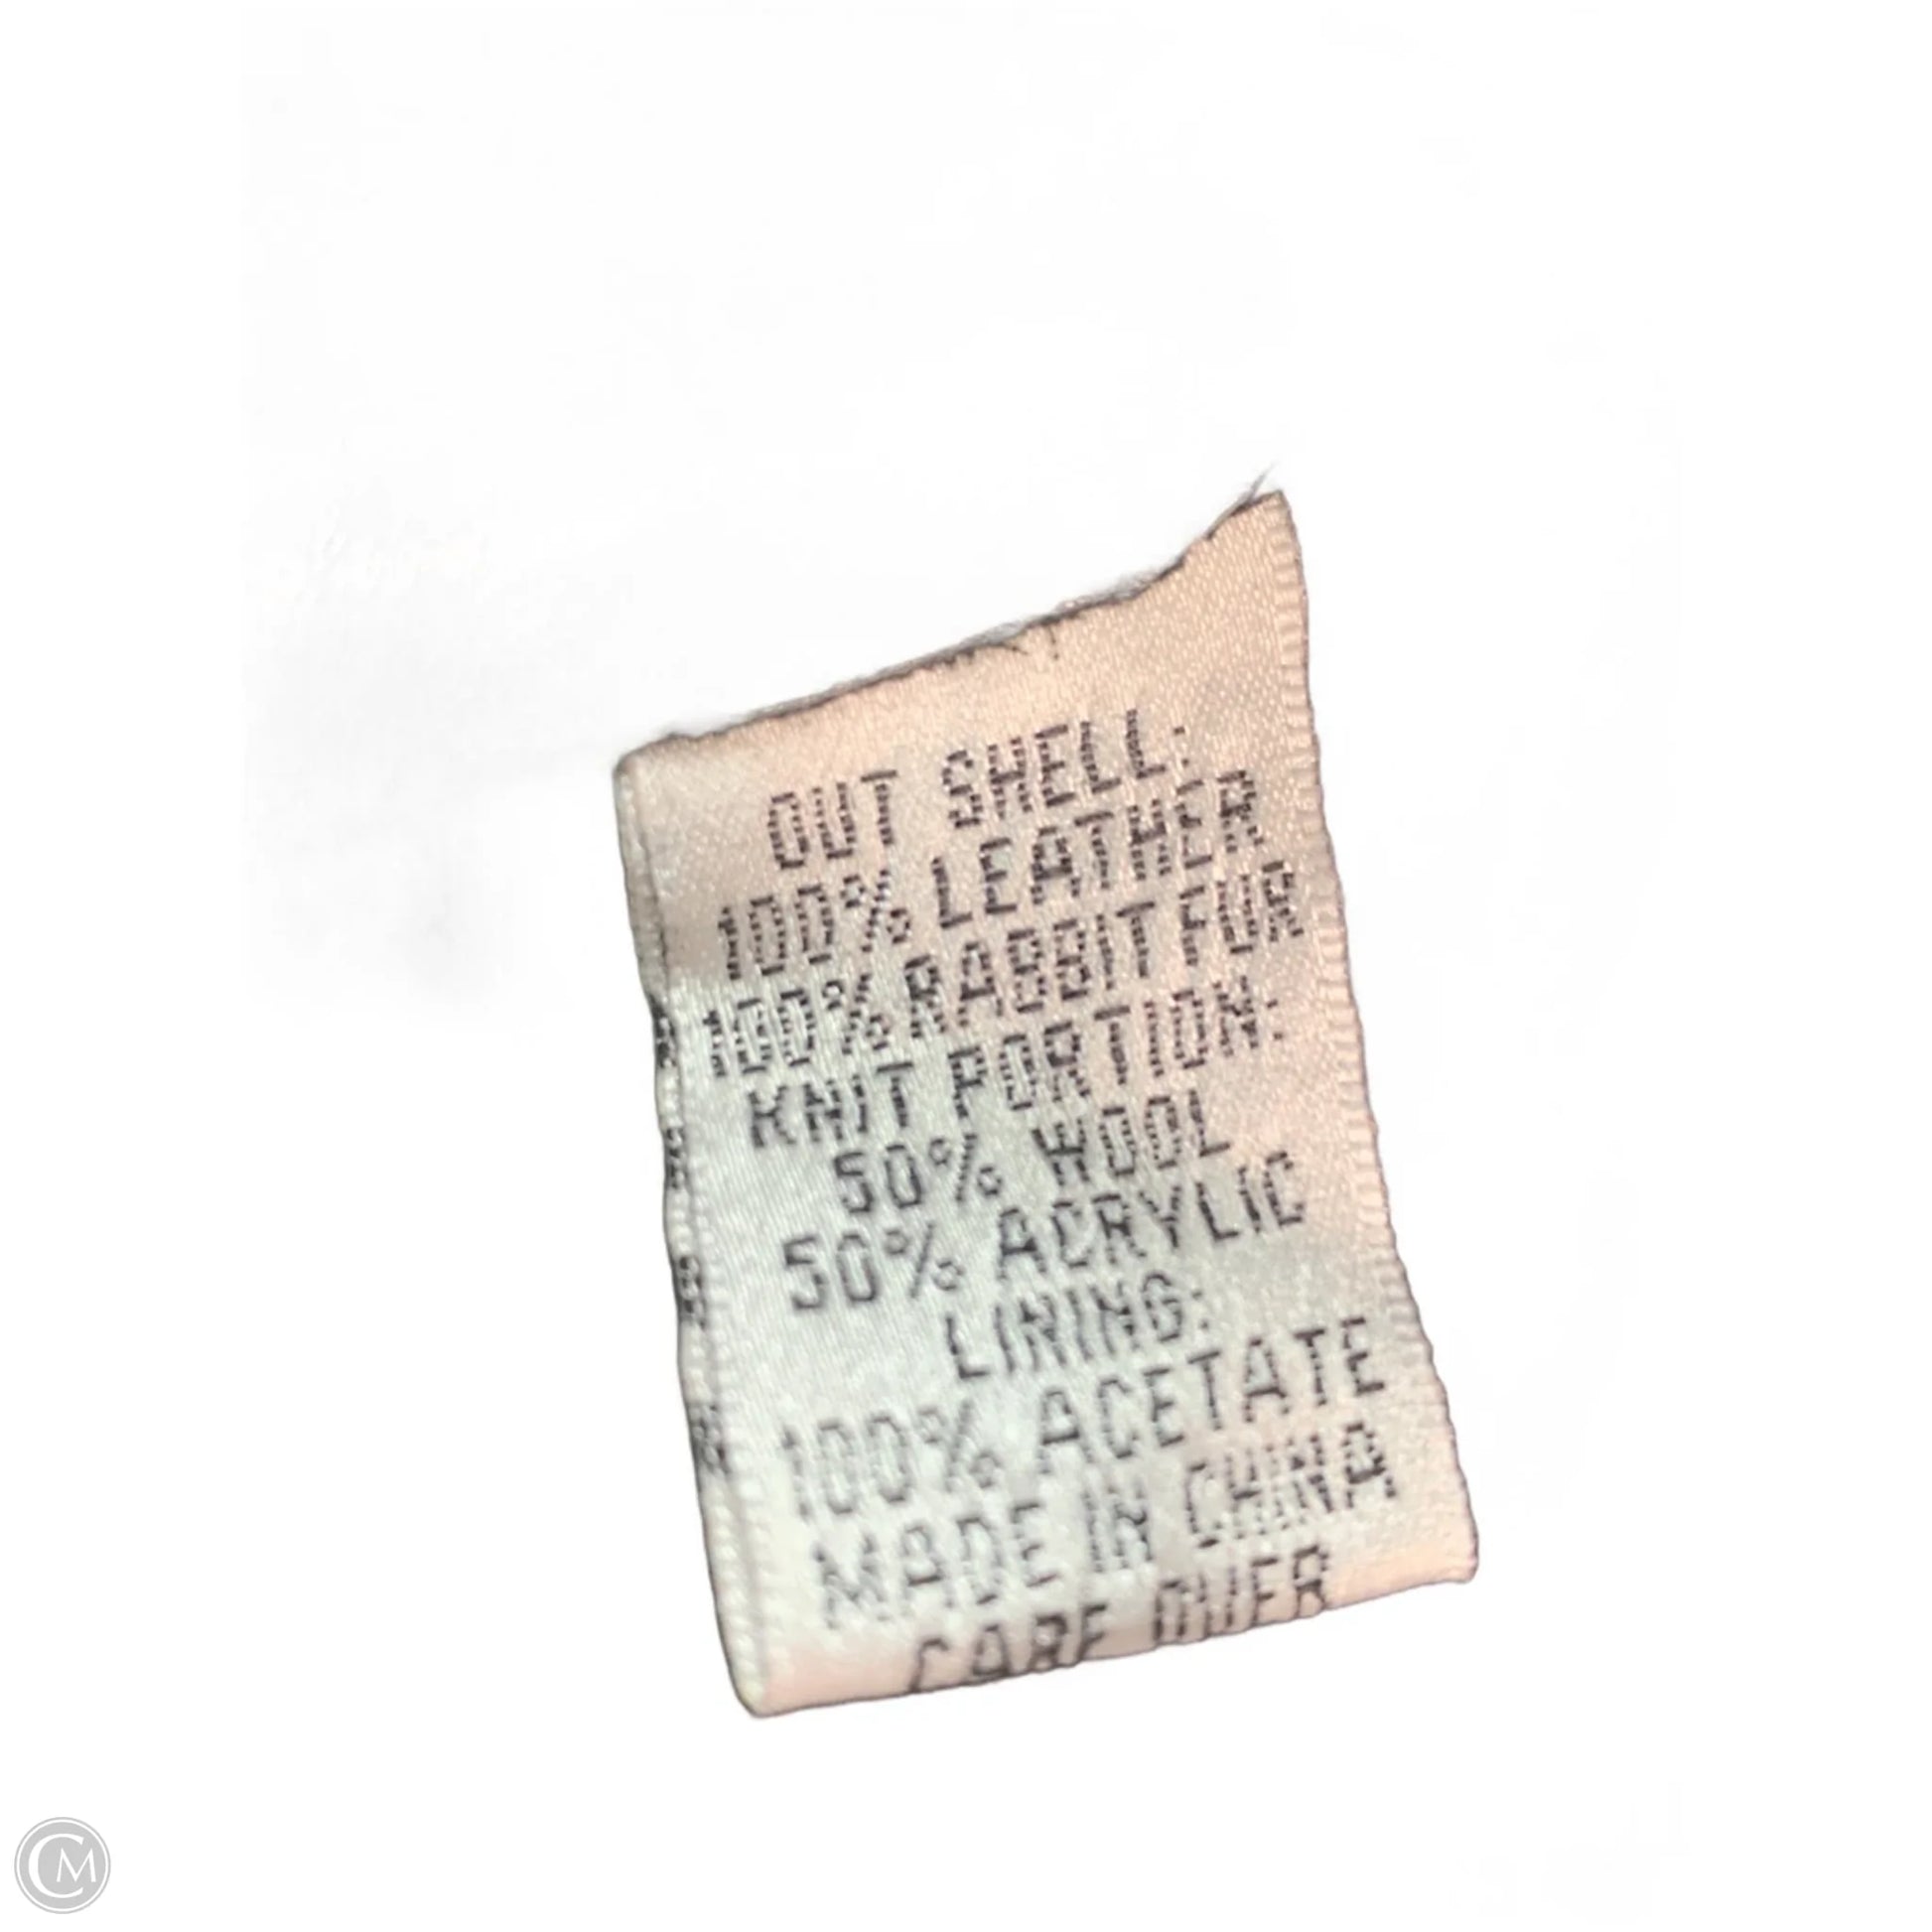 OUT SHELL:
100% LEATHER
100% RABBIT FUR
KNIT PORTION:
50% WOOL
50% ACRYLIC
LINING:
100% ACETATE
MADE IN CHINA
CARE OVER
CM